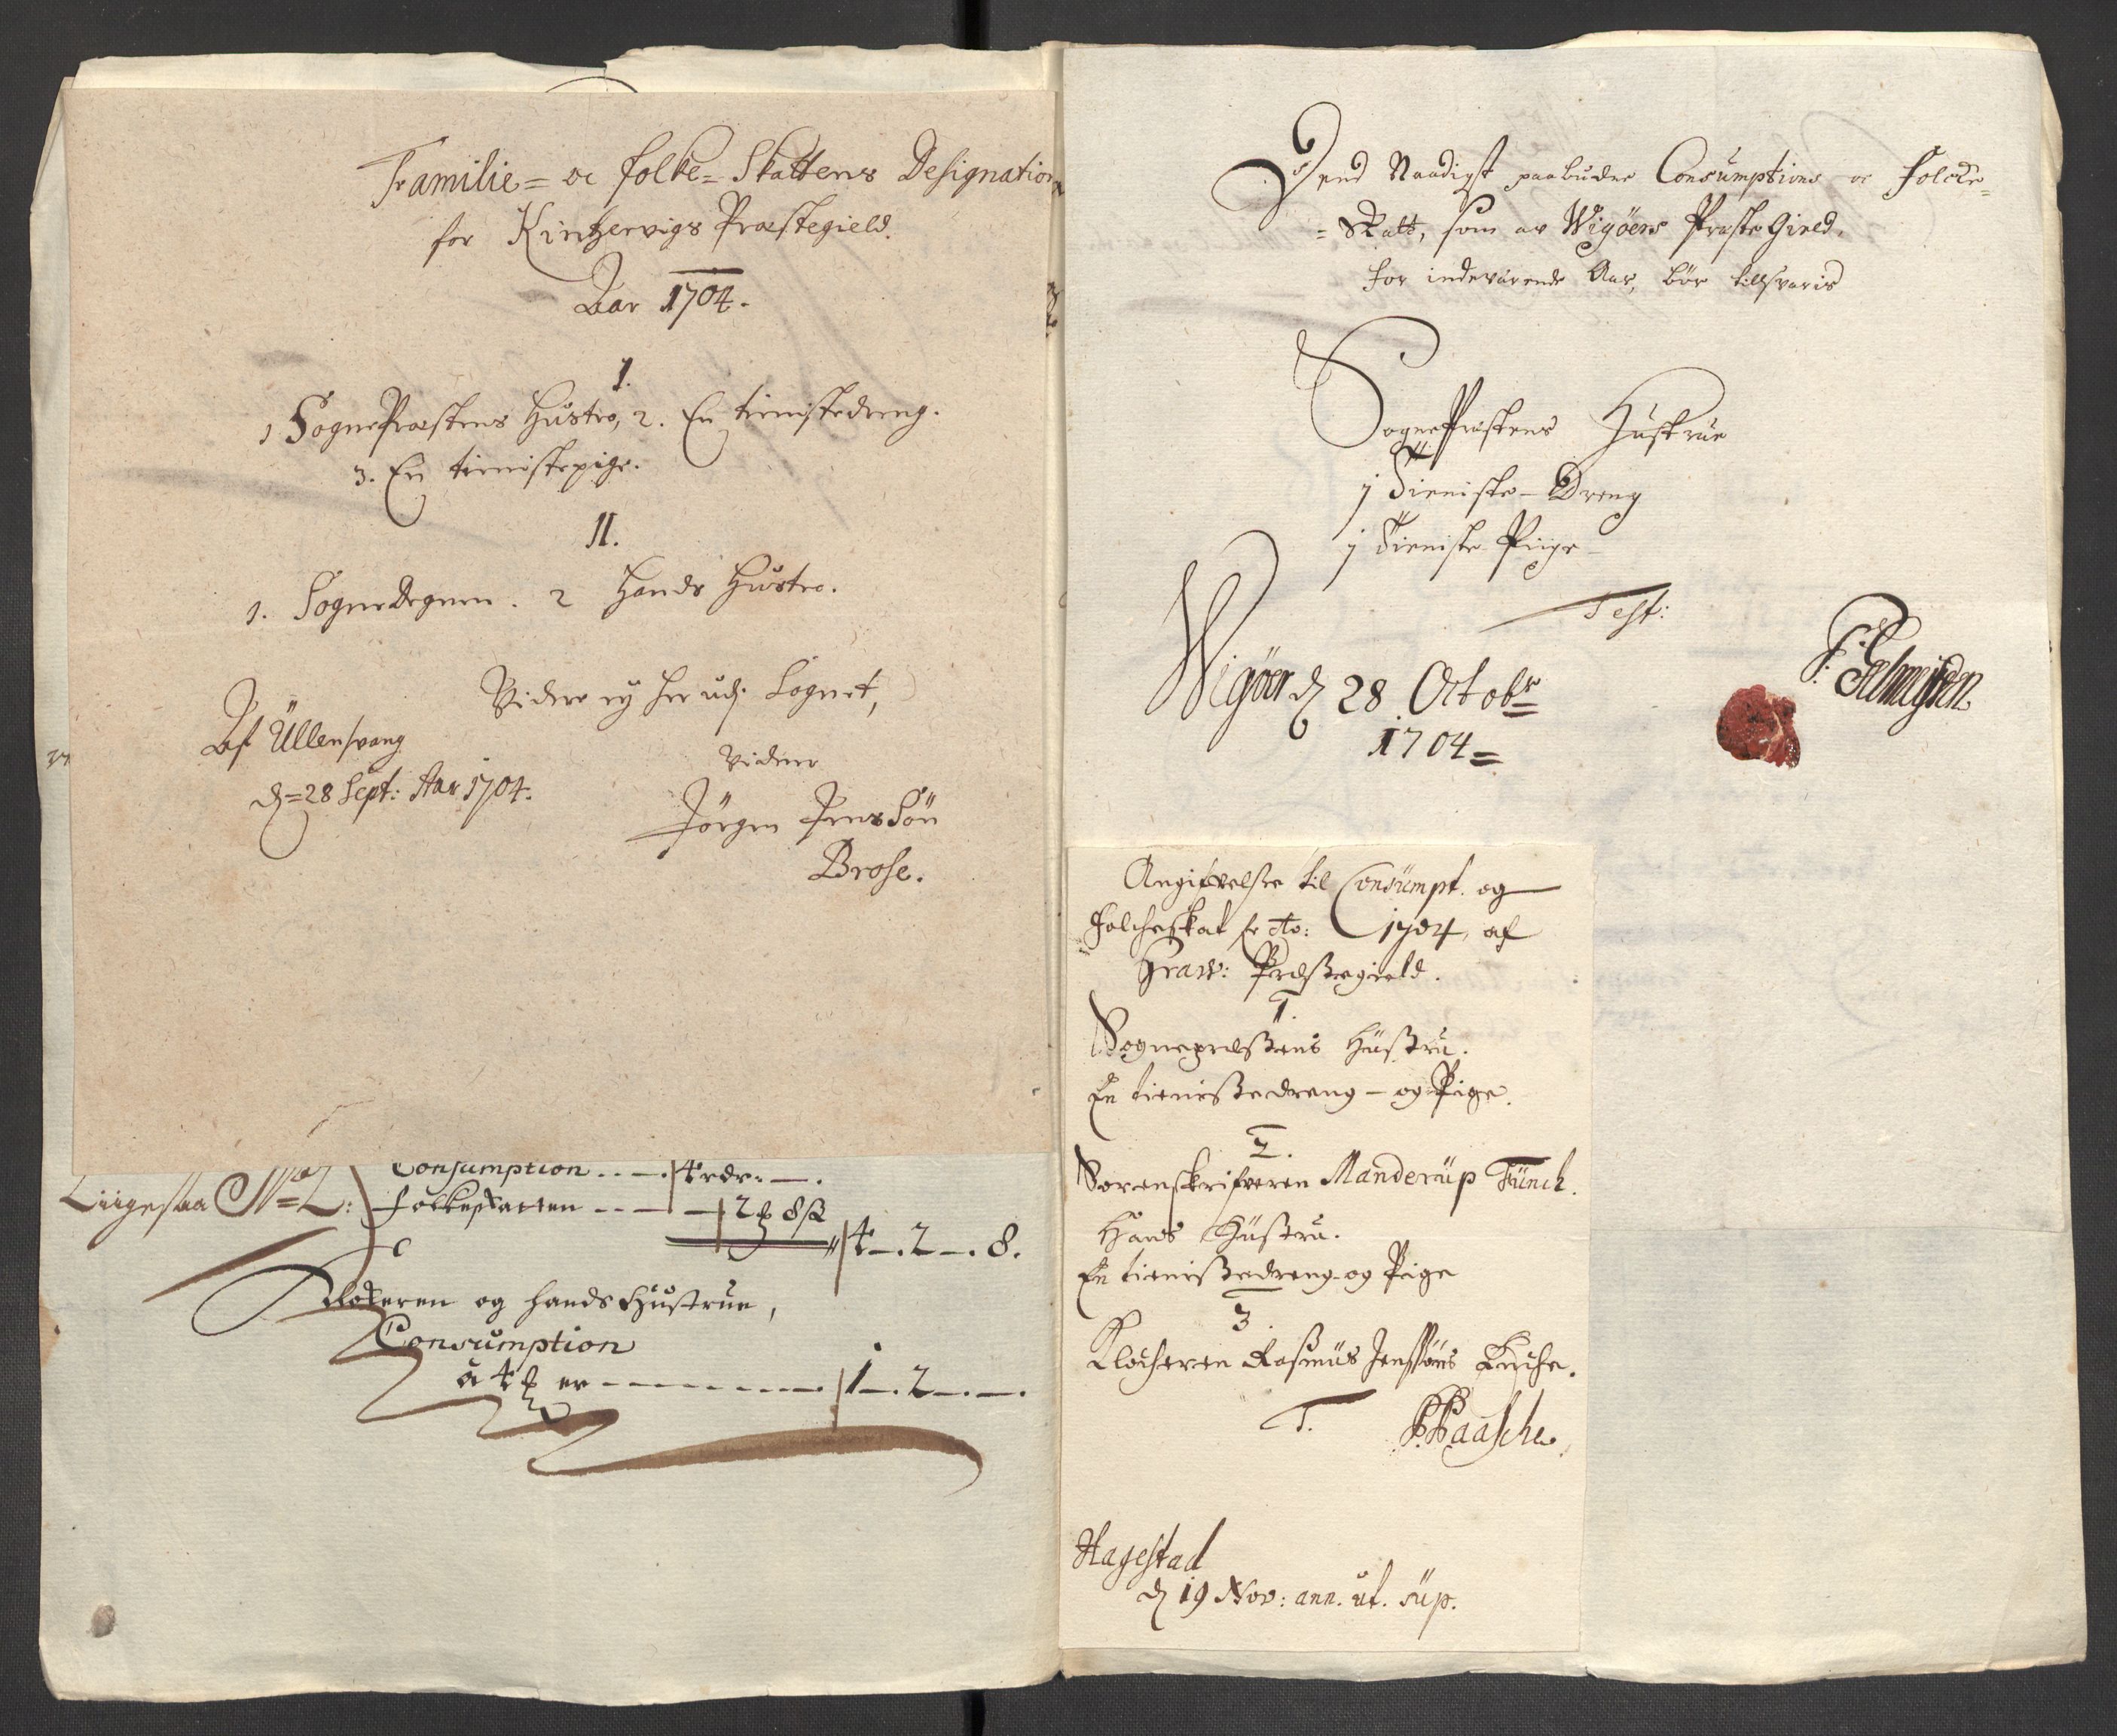 Familie= oc folke= Skattens Designation
for Kinzervigs Præstegield.
Aar 1704.
I.
1 SognePræstens Hustro, 2. En tienistedreng.
3. En tienistepige.
II.
1. SogneDegnen. 2 Hands Hustro.
Videre ey her udj Sognet,
Af Üllensvang
vidner
d. =28 Sept: Aar 1704.
Jörgen JensSön
Brose.
Consumption . . — . 4 rdr. — .
Liigesaa
folkeskatten . . — — 2 8 ß
4 —. 2 —. 8.
Klokeren og hands Hustrue,
Consumption
à 4 er — — — — 1 —. 2 —. —.
Dend Naadigst paabudne Consumptions oc Folcke=
= Skatt, som av Wigöens Præste Gield,
for indeværende Aar, bör tillsvaris
SognePræstens Hustrue
j Tieniste-Dreng
j Tieniste Piige
Test:
Wigöer d 28 Octobr
1704=
Angifvelse til Consumpt. og
Folcheskat 1704, af
Grav: Præstegield.
1.
Sognepræstens Hüstru.
En tienistedreng — og Pige.
2.
Sorenskrifveren Manderüp Fünck.
Hans Hüstru.
En tienistedreng og Pige
3.
Klocheren Rasmus Jenssöns Enche.
T. Paasche
Hagestad
d 19 Nov: ann. ut. süp.